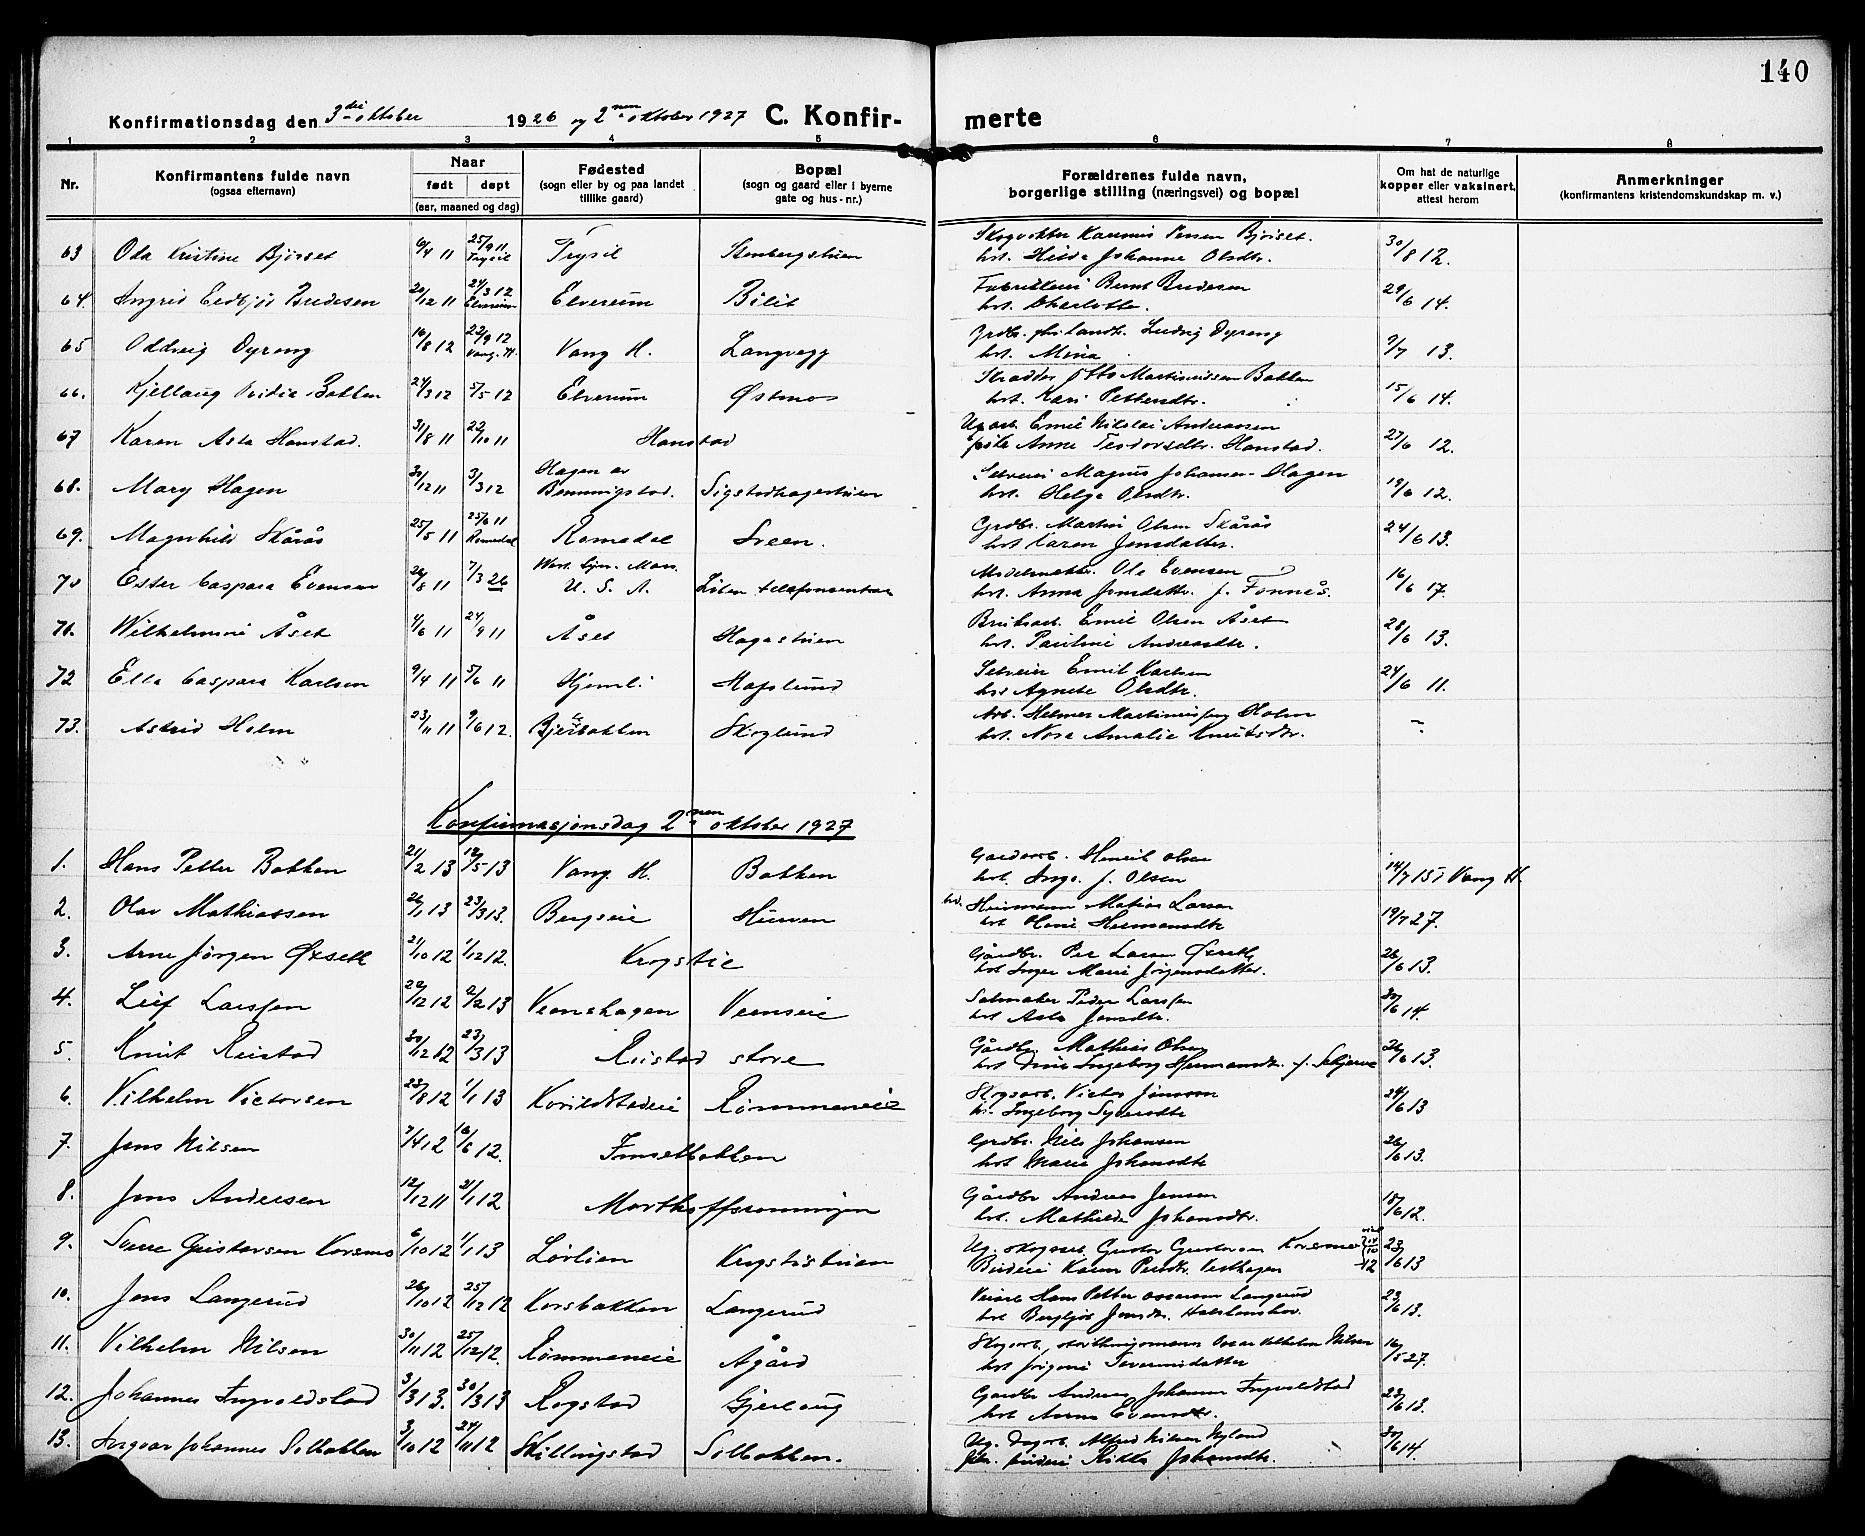 140
Konfirmationsdag den 3die oktober 1926 og 2nen oktober 1927 C. Konfir- merte
1 2 3 4 5 6 7 8
Nr. Konfirmantens fulde navn (ogsaa efternavn) Naar født døpt (aar, maaned og dag) Fødested (sogn eller by og paa landet tillike gaard) Bopæl (sogn og gaard eller i byerne gate og hus-nr.) Forældrenes fulde navn, borgerlige stilling (næringsvei) og bopæl Om hat de naturlige kopper eller vaksinert, attest herom Anmerkninger (konfirmantens kristendomskundskap m. v.)
63 Oda Kristine Bjørset 6/4 11 25/9 11 Trysil Trysil Stenbergstuen Skogvokter Karenius Persen Bjørset. hst. Hilda Johanne Olsdtr. 30/8 12.
64. Ingrid Eldbjør Budesen 20/12 11 24/3 12 Elverum Elverum Bilit Bernt Budesen hst. Charlotte. 29/6 14.
65 Oddveig Dyreng 16/8 12 22/9 12 Vang. H. Vang H. Langvegg Ludvig Dyreng hst. Mina 9/7 13.
66. Kjellaug Bakken 24/3 12 5/5 12 Elverum Østmo Skrædder Otto Martiniussen Bakken hst. Kari Pettersdtr. 15/6 14.
67 Karen Asta Hanstad. 31/8 11 22/10 11 Hanstad Ug. arb. Emil Nikolai Anderssen Anne Teodorsdtr. Hanstad. 27/6 12.
68. Mary Hagen 30/12 11 3/3 12 Hagen av Benningstad. Sigstadhagestuen Selveier Magnus Johansen Hagen hst. Helga Olsdtr. 19/6 12.
69. Magnhild Skårås 25/5 11 25/6 11 Romedal Romedal Sveen. Grdbr. Martin Olsen Skårås hst Karen Jensdatter. 24/6 13.
70 Ester Caspara Evensen 26/8 11 7/3 26 West Lynn Mass. U. S. A. Løten telefonsentral Ole Evensen hst. Anna Jensdatter f. Fonnås. 16/6 17.
71. Wilhelmine Åset 4/6 11 24/9 11 Åset Hagestuen Bruksarb. Emil Olsen Åset hst. Pauline Andreasdtr. 28/6 13.
72 Ella Caspara Karlsen 9/4 11 5/6 11 Hjemli Hafslund Selveier Emil Karlsen hst Agnete Olsdtr. 24/6 11.
73. Astrid Holm 23/11 11 9/6 12. Skoglund Arb. Helmer Martiniussen Holm hst. Nora Amalie Knutsdtr. -
Konfirmasjonsdag 2nen oktober 1927
1. Hans Petter Bakken 21/2 13 12/5 13 Vang H. Bakken Gardarb. Henrik Olsen hst. Inga J. Olsen 14/7 15 i Vang H.
2. Olav Mathiassen 26/1 13 23/3 13. Bergseie Hurven Husmann Matias Larsen hst Oline Hermansdtr 19/7 27.
3. Arne Jørgen Øxseth 21/10 12 1/12 12. Krogstie Gårdbr. Per Larsen Øxseth hst Inger Marie Jørgensdatter. 26/6 13.
4. Leif Larssen 29/12 12 2/2 13 Veenshagen Veenseie Salmaker Peder Larssen hst. Asta Jensdtr. 30/6 14.
5. Knut Reistad 30/12 12 23/3 13 Reistad store Gårdbr. Mathias Olsen hst Dina Ingeborg Hermansdtr. f. 26/6 13.
6. Vilhelm Victorsen 23/8 12 1/1 13 Korildstadeie Rømmeneie Skogsarb. Victor Jonsson h. Ingeborg Syversdtr 24/6 13
7. Jens Nilsen 7/4 12 16/6 12. Imsetbakken Grdbr. Nils Johansen hst Marie Johansdtr 26/6 13.
8. Jens Andersen 12/12 11 21/1 12 Marthoffsrønningen Gårdbr Andreas Jensen hst. Mathilde Johansdtr. 18/6 12.
9. Sverre Gustavsen Korsmo 6/10 12 1/1 13 Lørlien Krogstistuen Ug. skogsarb. Gustav Gustavsen Korsmo Budeie Karen Persdtr. Vesthagen 23/6 13
10. Jens Langerud 26/10 12 25/12 12 Korsbakken Langerud Hans Petter Langerud hst Bergljot Jensdtr. 23/6 13.
11. Vilhelm Nilsen 30/11 12 25/12 12. Rømmeneie Ågård Skogsarb., Oscar Vilhelm Nilsen hst Jørgine 16/5 27.
12. Johannes Ingvoldstad 3/3 13. 30/3 13 Rogstad Gjerlaug Gardbr Andreas Johannes Ingvoldstad hst Anna Evensdtr. 23/6 13.
13. Ingvar Johannes Solbakken 3/10 12 24/11 12 Skillingstad Solbakken. Ug. Dagarb. Alfred Nilsen Nyland Johansdtr. 30/6 14